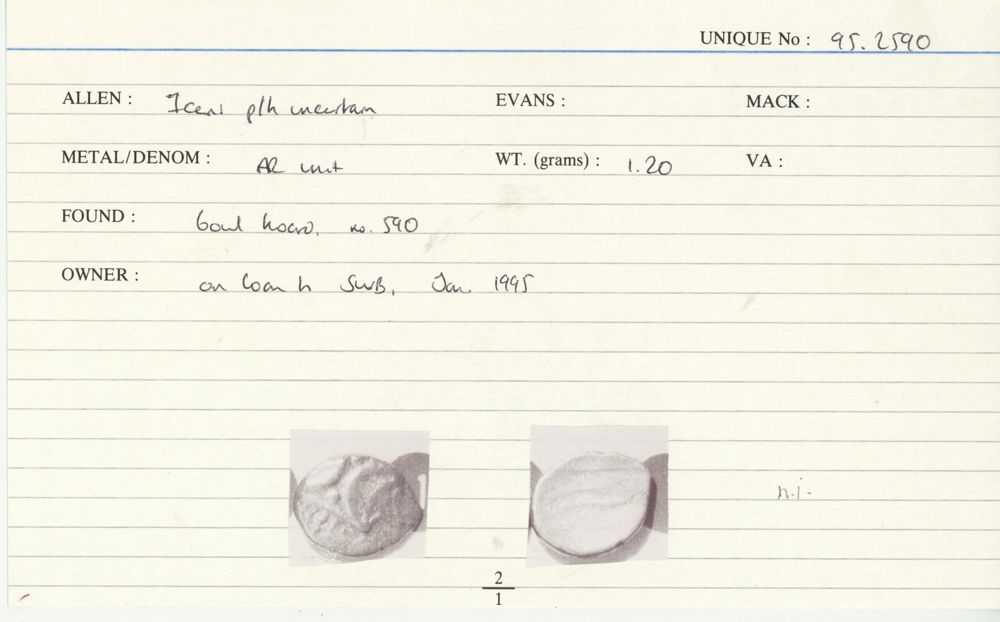 UNIQUE No : 95.2590
ALLEN : Iceni plh uncertain EVANS : MACK :
METAL/DENOM : AR unit WT. (grams) : 1.20 VA :
FOUND : hoard, no. 590
OWNER : on loan to SWB, Jan. 1995
n.i.
2
1